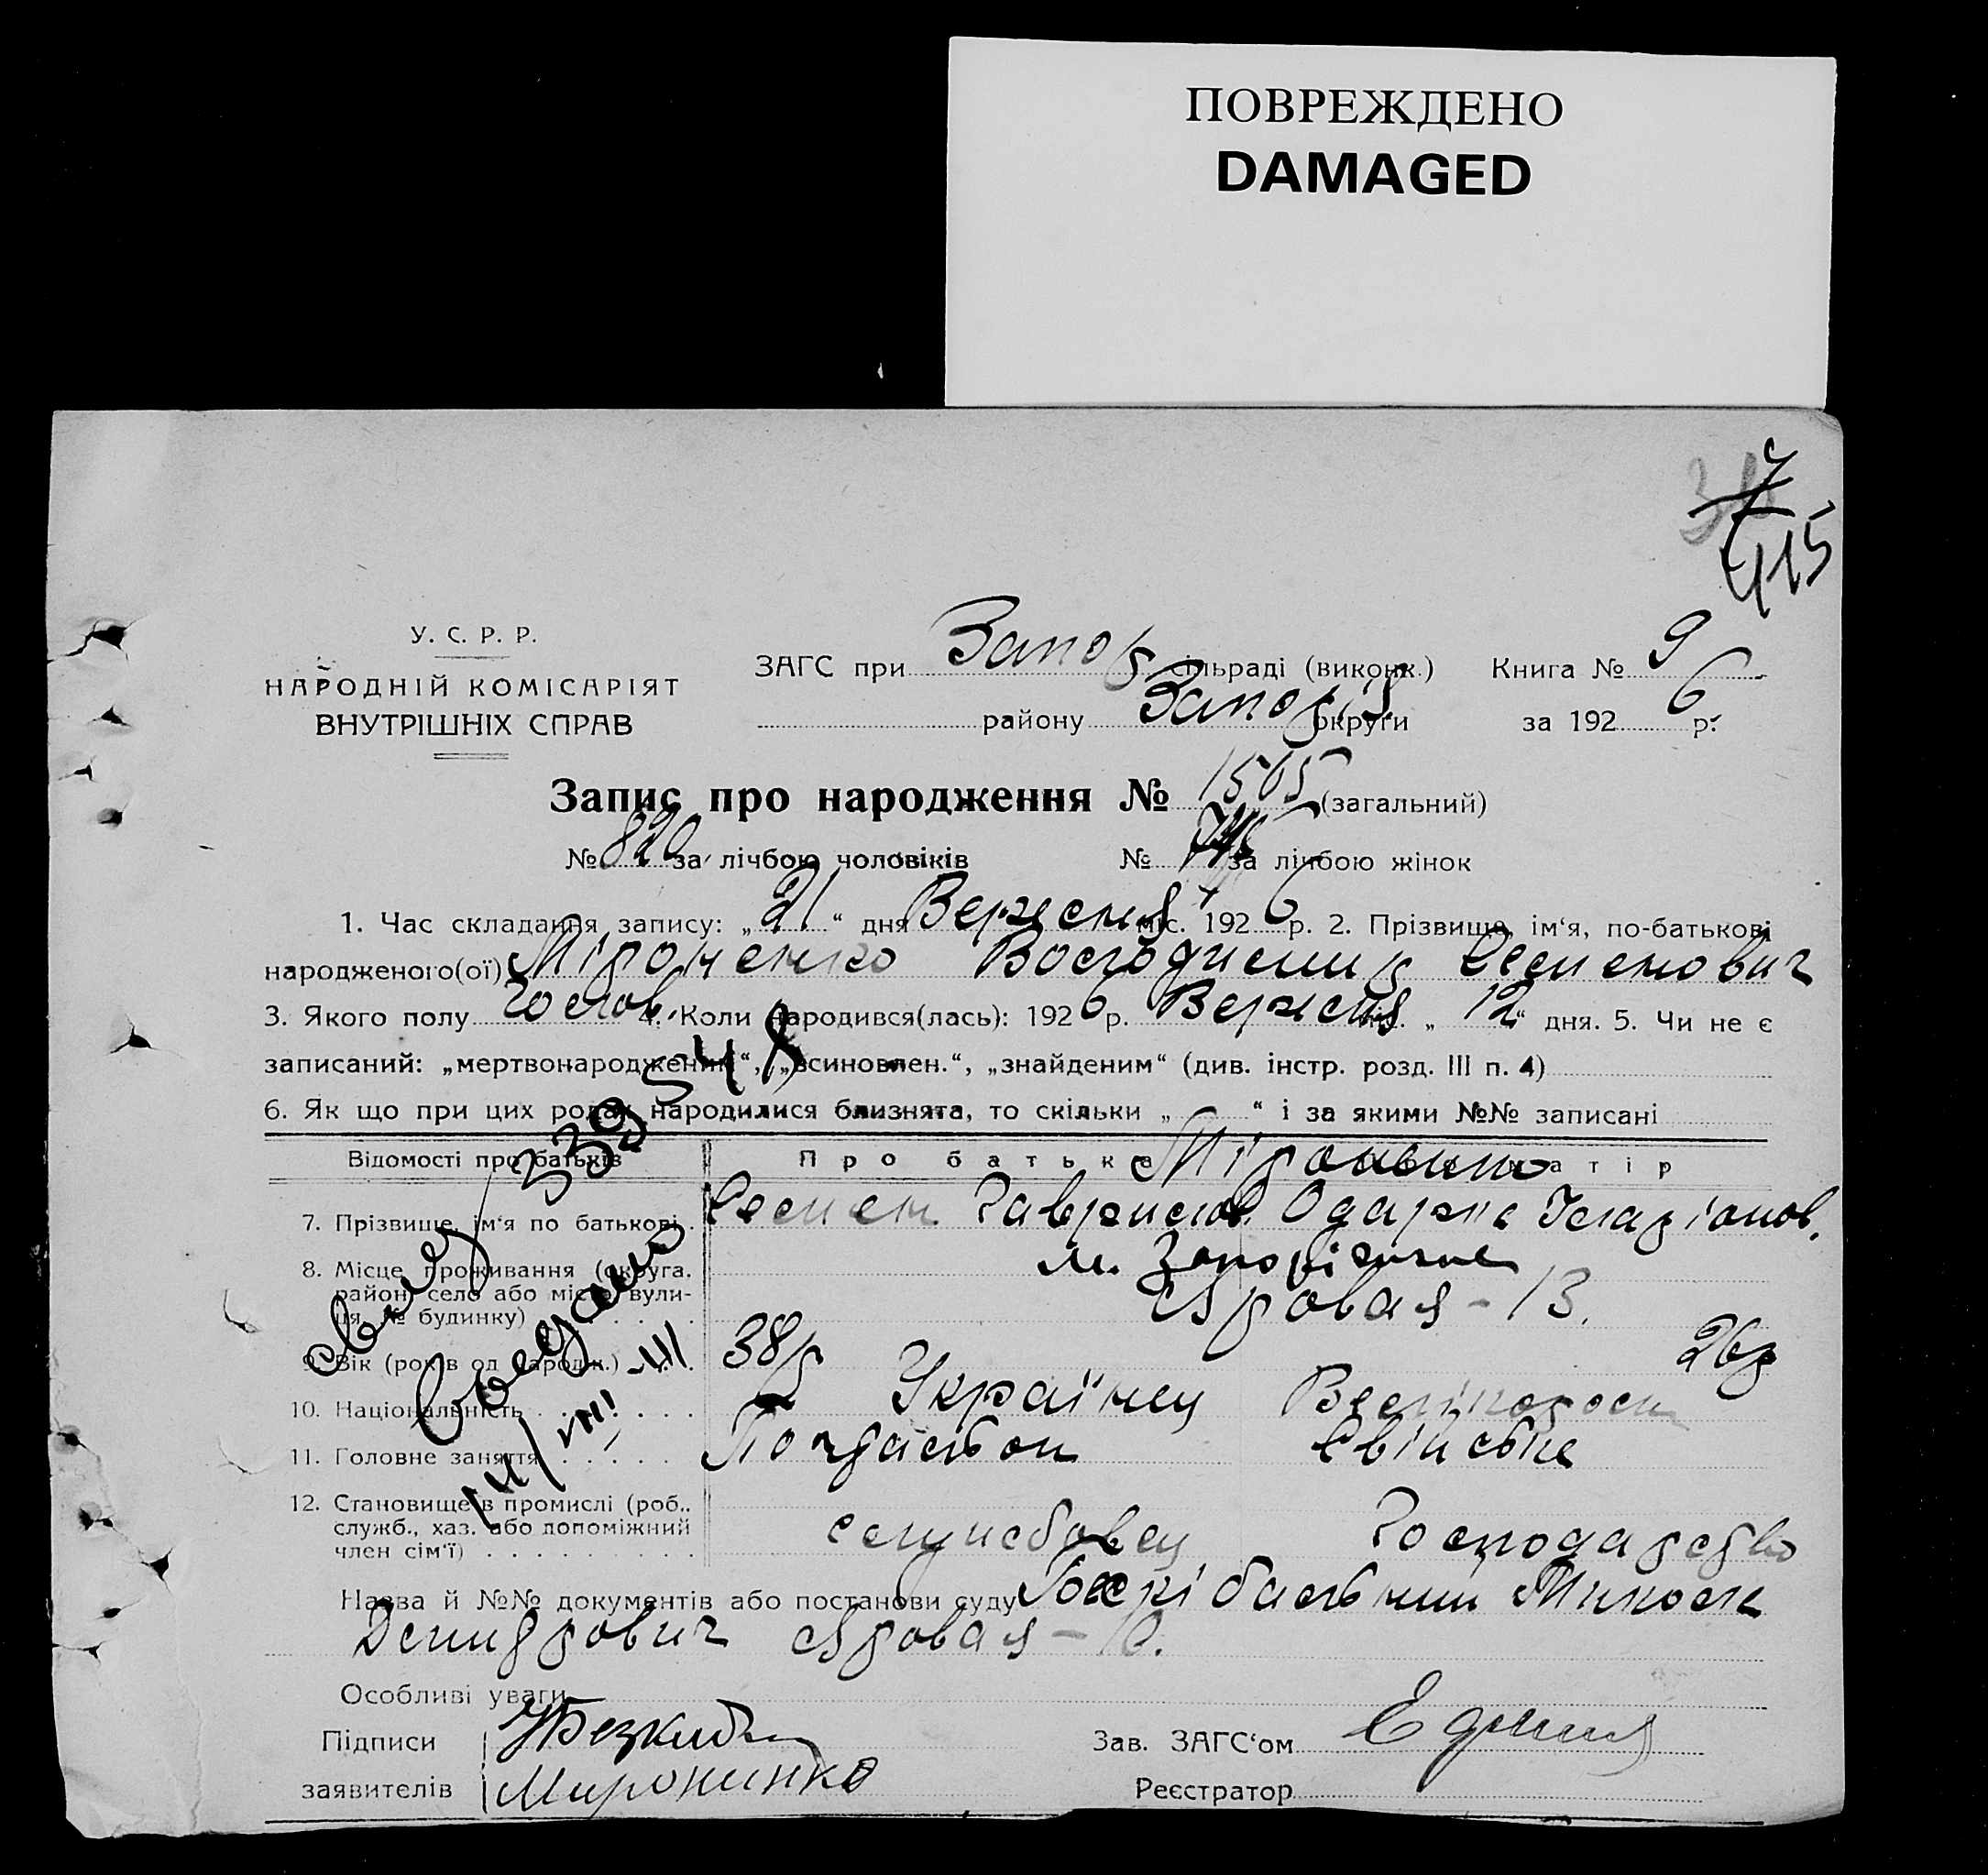 ПОВРЕЖДЕНО
DAMAGED
415
У. С. Р. Р.
НАРОДНІЙ КОМІСАРІЯТ
ВНУТРІШНІХ СПРАВ
ЗАГС при Запор сільраді (виконк.) Книга № 9
району Запоріз округи за 1926 р.
Запис про народження № 1565 (загальний)
№ 820 за лічбою чоловіків № за лічбою жінок
1. Час складання запису: „21“ дня Вересня міс. 1926 р. 2. Прізвище, ім‘я, по-батькові
народженого(ої) Міроненко Семенович
3. Якого полу Чолов. 4. Коли народився(лась): 1926 р. Вересня міс. „12“ дня. 5. Чи не є
записаний: „мертвонароджений“, „всиновлен.“, „знайденим“ (див. інстр. розд. III п. 4)
6. Як що при цих родах народилися близнята, то скільки „ “ і за якими №№ записані
Відомості про батьків Про батька Про матір
Міроненко
7. Прізвище, ім‘я по батькові Семен Гаврилов. Одарка Іларіонов.
8. Місце проживання (округа, район, село або місто, вулиця, № будинку) м. Запоріжжя
Яровая - 13.
9. Вік (років од народж.) 38 р 26 р
10. Національність Українец Велікорос
11. Головне заняття Свійське
12. Становище в промислі (роб., служб., хаз. або допоміжний член сім‘ї) службовец Господарство
Назва й №№ документів або постанови суду Микола
Демидович Яровая -
Особливі уваги
Підписи
заявителів Мироненко
Зав. ЗАГС‘ом
Реєстратор
свид 339548
14/VIII